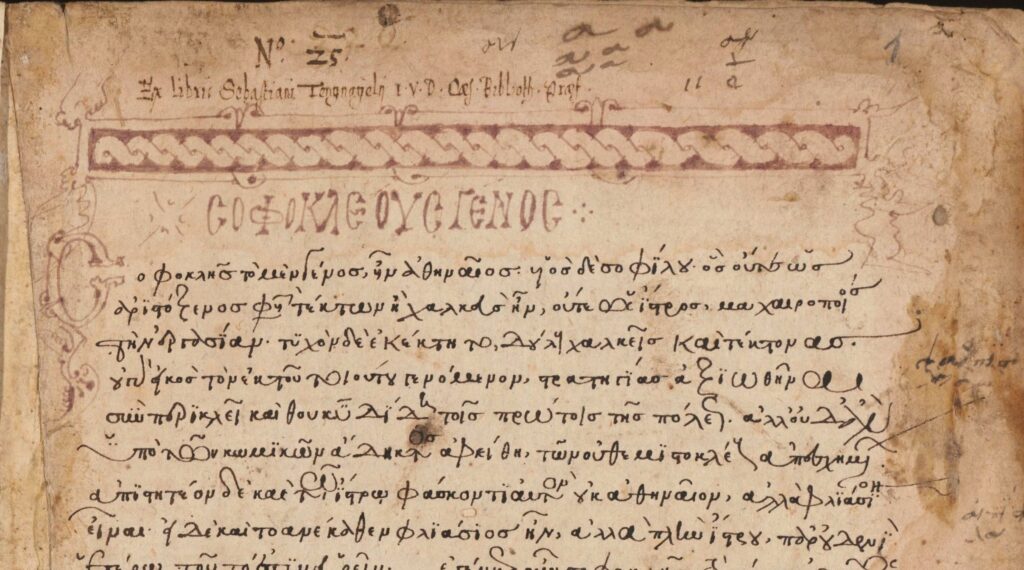 Nº. 25.
Ex libris Sebastiani Tengnageln I.V.D. Caes. Biblioth. Praef.
1
ΣΟΦΟΚΛΕΟΥΣ ΓΕΝΟΣ
Σοφοκλῆς τὸ μὲν γένος, ἦν ἀθηναῖος. υἱὸς δὲ σοφίλου. ὃς οὔτε ὡς
ἀριστόξενος φησὶ τέκτων ἢ χαλκεὺς ἦν, οὔτε ὡς ἴστρος, μαχαιροποιὸς
τὴν ἐργασίαν. τυχὸν δὲ ἐκέκτητο, δούλους χαλκεῖς καὶ τέκτονας.
οὐ γὰρ εἰκὸς τὸν ἐκ τοῦ τοιούτου γενόμενον, στρατηγίας ἀξιωθῆναι
σὺν περικλεῖ καὶ θουκυδίδη τοῖς πρώτοις τῆς πόλεως. ἀλλ' οὐδ' ἂν
ὑπὸ τῶν κωμικῶν ἄδηκτος ἀφείθη, τῶν οὐ θεμιστοκλέους ἀποσχομένων
ἀπιστητέον δὲ καὶ τῶ ἴστρω φάσκοντι αὐτὸν οὐκ ἀθηναῖον, ἀλλὰ φλιάσιον
εἶναι. εἰ δὲ καὶ τὸ ἀνέκαθεν φλιάσιος ἦν, ἀλλὰ πλὴν ἴστρου, παρ' οὐδενὶ
ἑτέρω τοῦτο ἐστὶν εὑρεῖν.